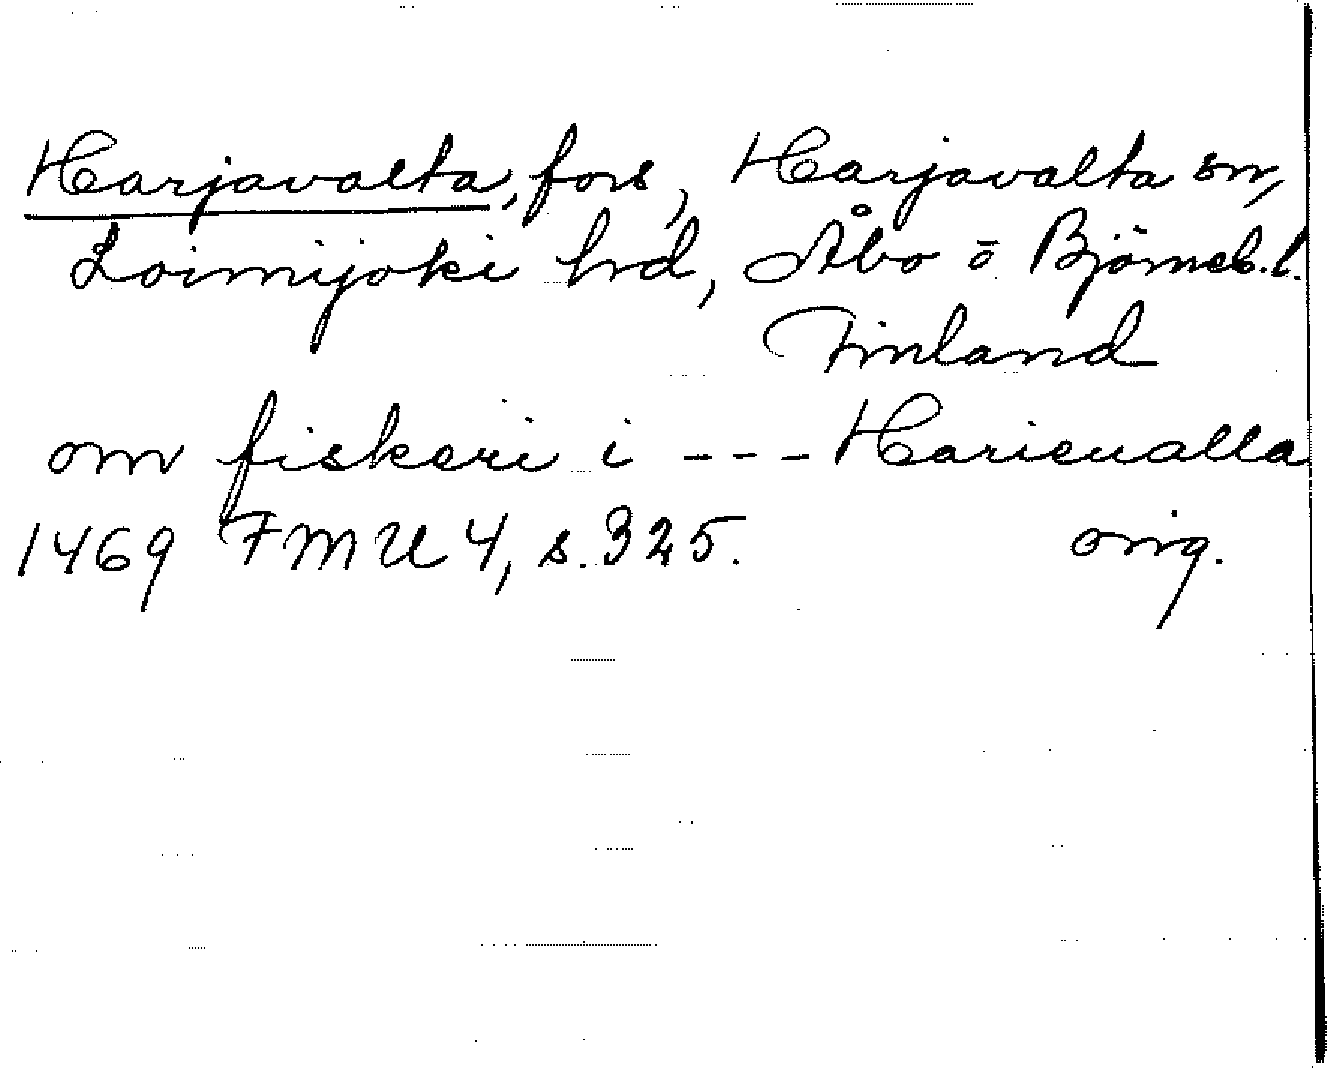 Harjavalta, fors, Harjavalta sn,
Loimijoki hd, Åbo o Björneb. l.
Finland
om fiskeri i --- Harieualla
1469 FMU 4, s. 325. orig.